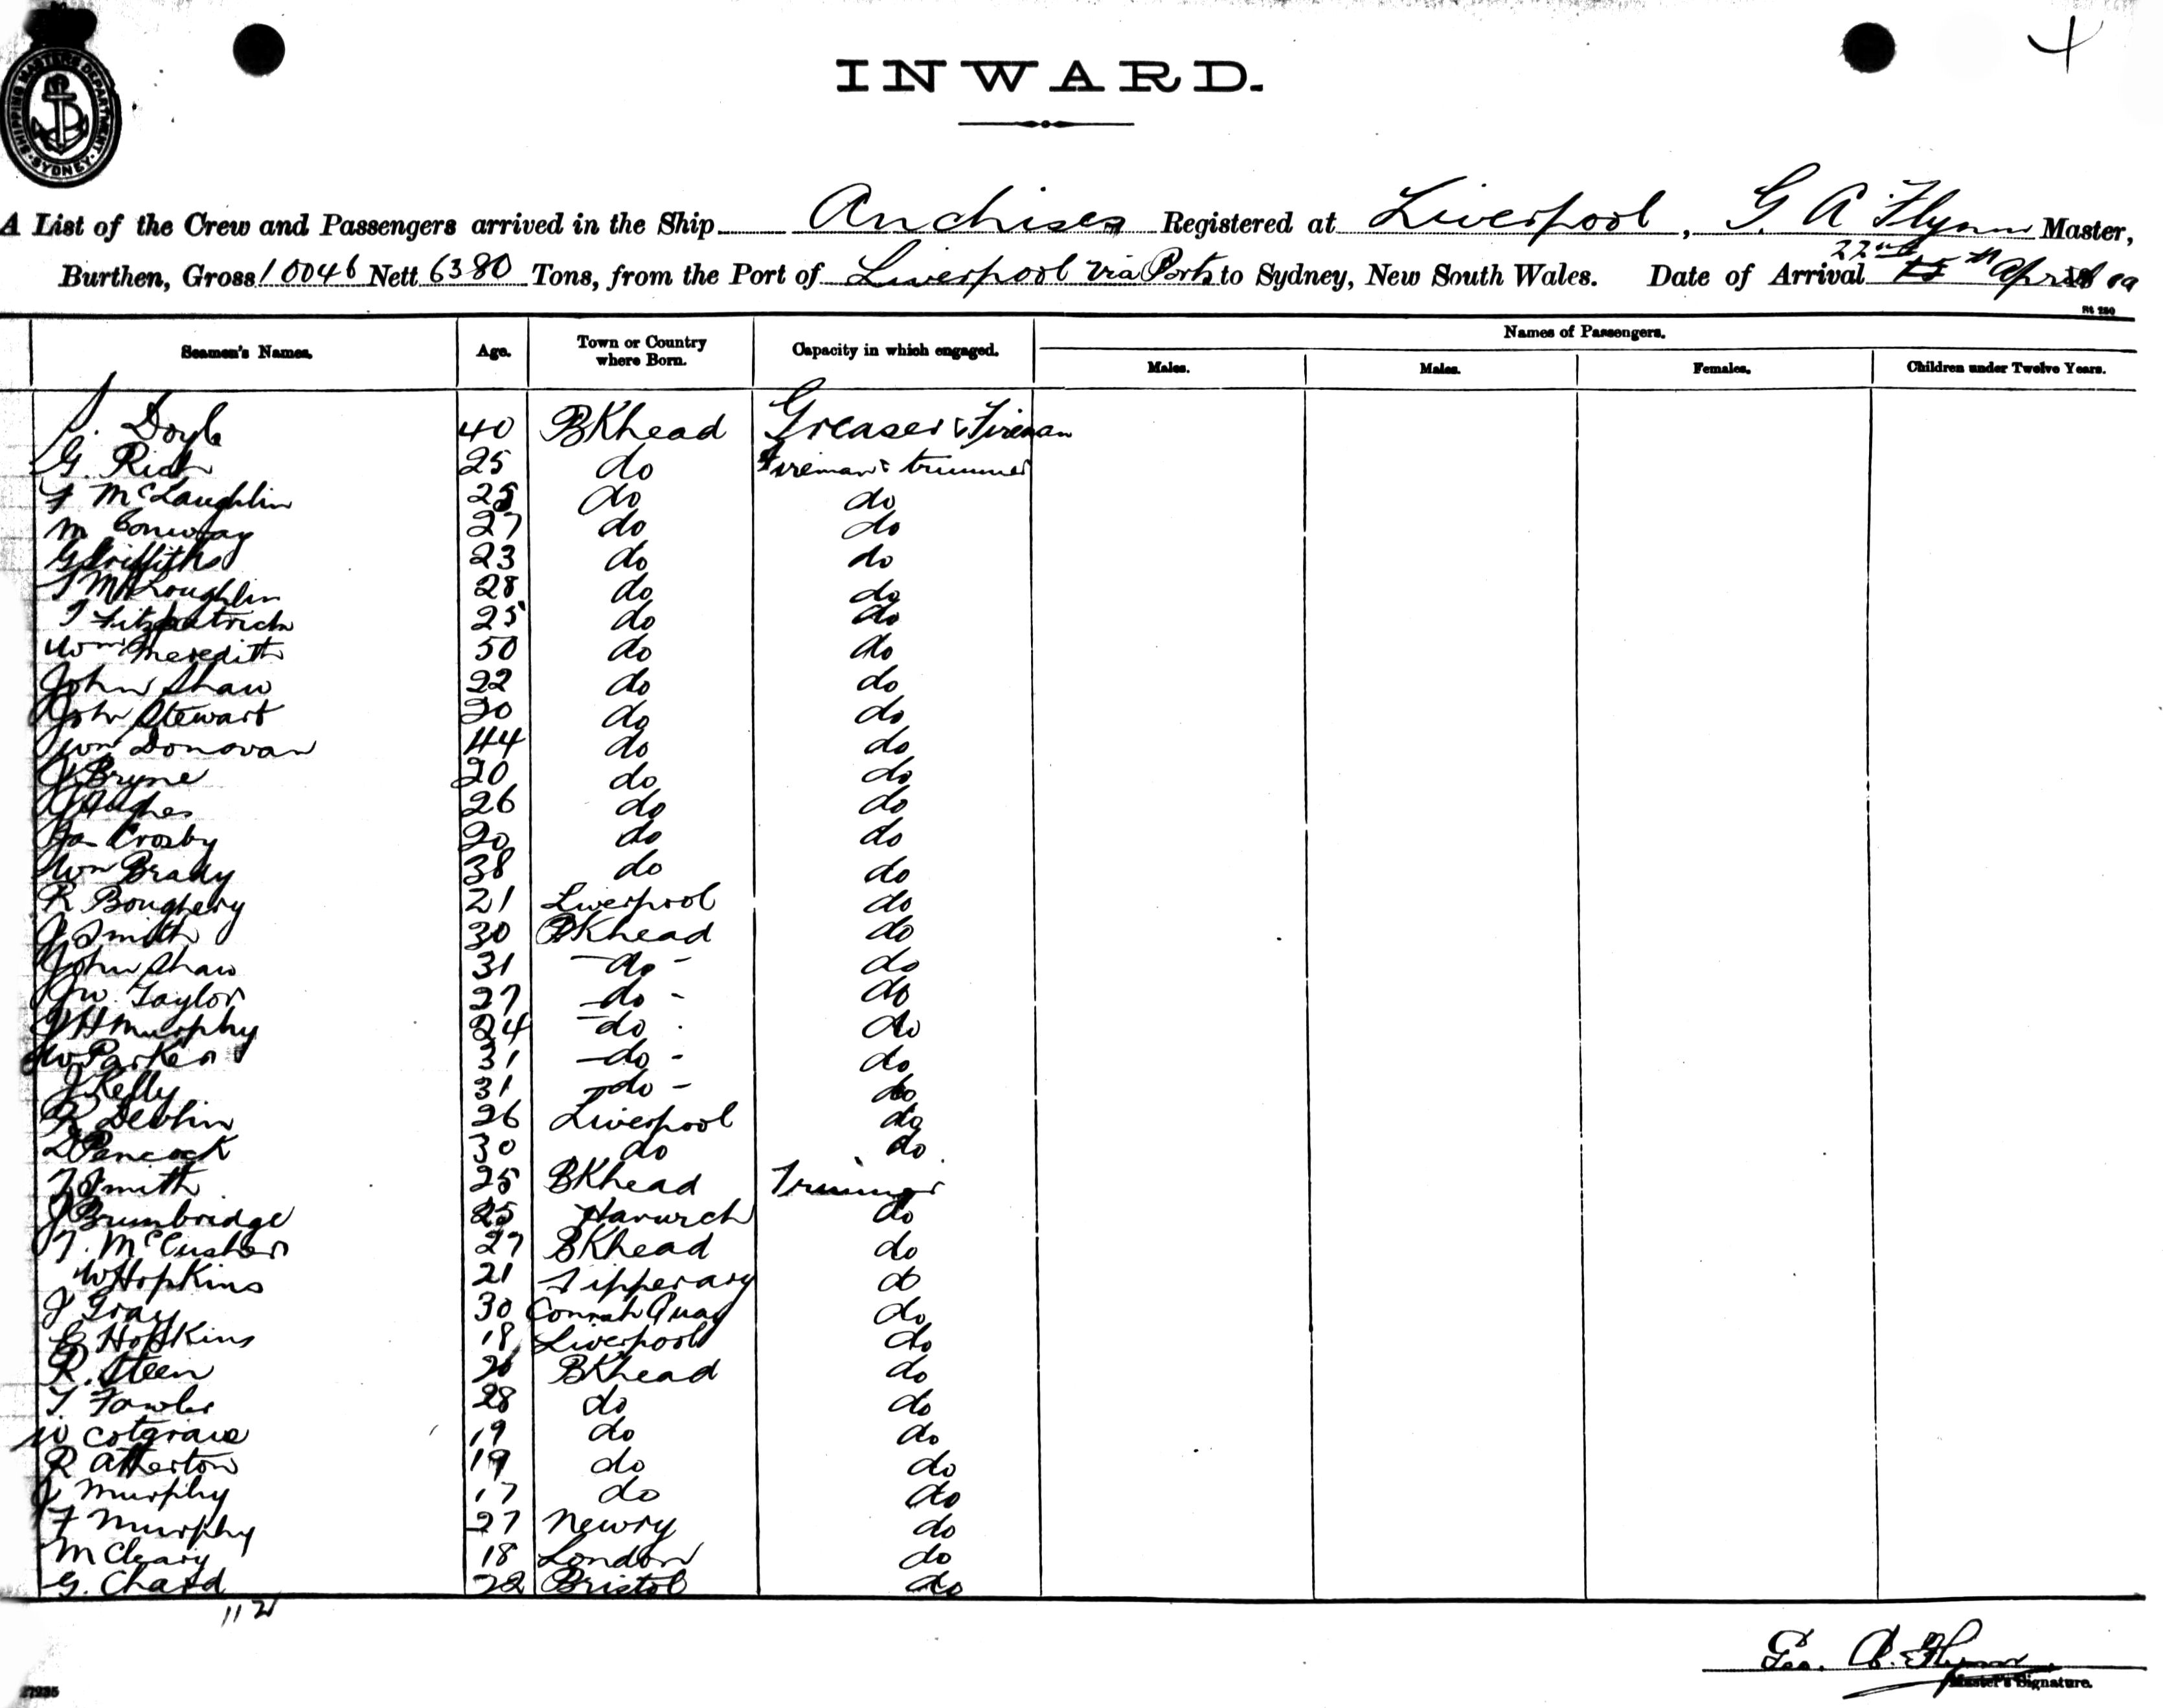 SHIPPING MASTER'S DEPARTMENT. SYDNEY.
INWARD.
A List of the Crew and Passengers arrived in the Ship Anchises Registered at Liverpool, G. A Flynn Master,
22nd
Burthen, Gross 10046 Nett 6380 Tons, from the Port of Liverpool via Ports to Sydney, New South Wales. Date of Arrival April
Names of Passengers.
Seamen's Names. Age. Town or Country where Born. Capacity in which engaged. Males. Males. Females. Children under Twelve Years.
Doyle 40 BKhead Greaser & Fireman
G. Rich 25 do Fireman & trimmer
F McLaughlin 25 do do
M Conway 27 do do
G Griffiths 23 do do
McLoughlin 28 do do
Fitzpatrick 25 do do
Wm Meredith 50 do do
John Shaw 22 do do
John Stewart 20 do do
Wm Donovan 44 do do
J Bryne 20 do do
Hughes 26 do do
Jas Crosby 20 do do
Wm Brady 38 do do
R Boughery 21 Liverpool do
J Smith 30 BKhead do
John Shaw 31 -do- do
Jw. Taylor 27 -do- do
J H Murphy 24 -do- do
W Parker 31 -do- do
J Kelly 31 -do- do
R Devlin 26 Liverpool do
Pencock 30 do do
T Smith 25 BKhead Trimmer
J Brumbridge 25 do
T. McCusker 27 BKhead do
W Hopkins 21 Tipperary do
J Gray 30 Connah Quay do
E Hopkins 18 Liverpool do
R. Steen 20 BKhead do
T. Fowler 28 do do
W Cotgrave 19 do do
R Atherton 19 do do
J Murphy 17 do do
F Murphy 27 Newry do
M Cleary 18 London do
G. Chard 22 Bristol do
112
Geo. A. Flynn
Master's Signature.